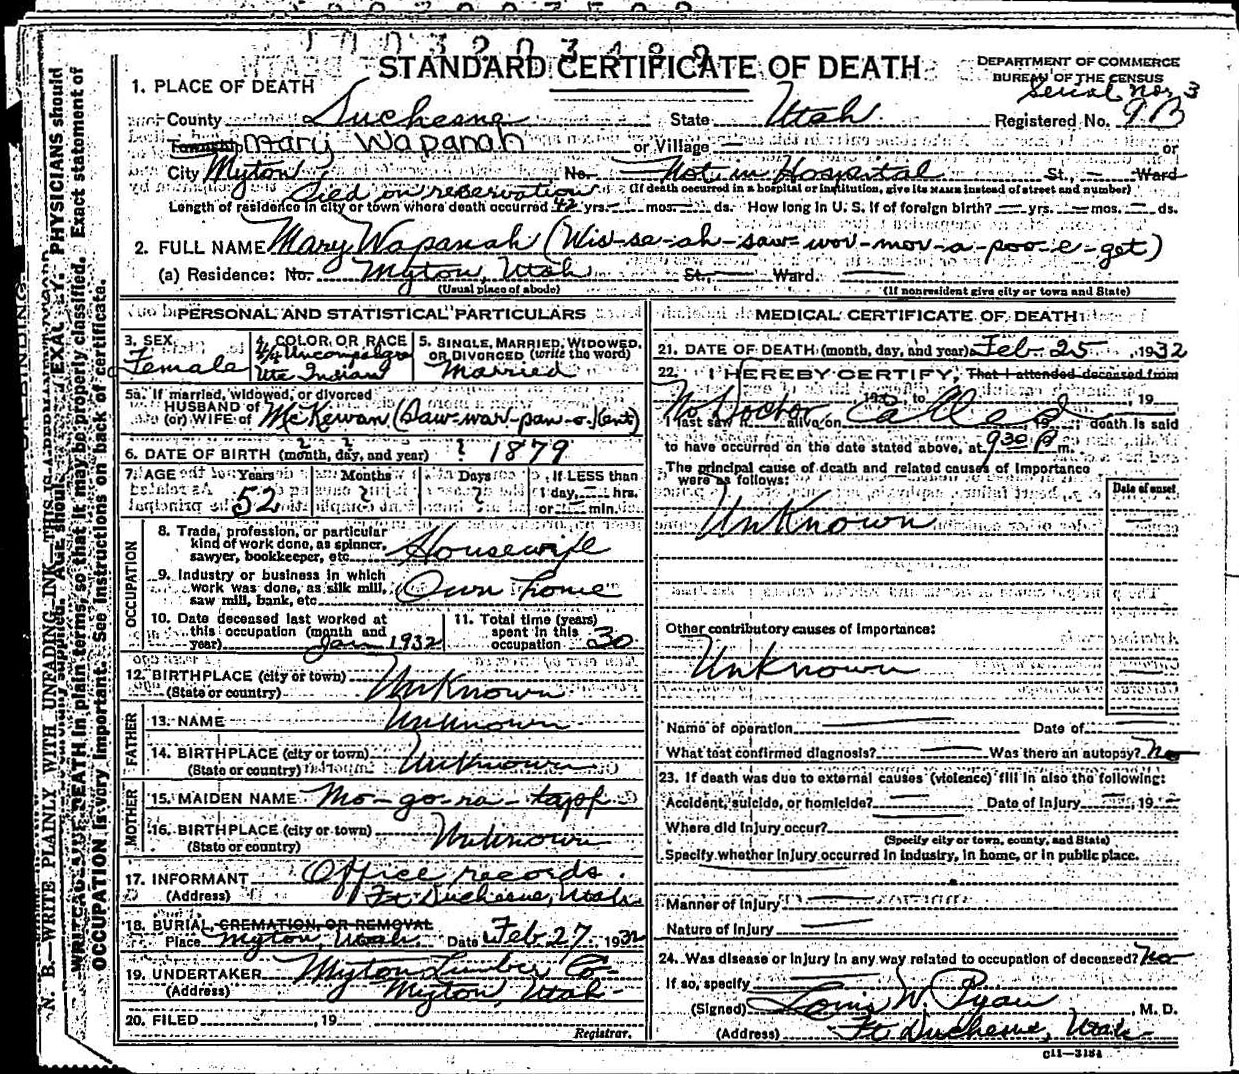 STANDARD CERTIFICATE OF DEATH
DEPARTMENT OF COMMERCE
BUREAU OF THE CENSUS
1. PLACE OF DEATH
Serial No. 3
County Duchesne State Utah Registered No. 9B
Township Mary Wapanah or Village — or
City Myton No. Not in Hospital St., — Ward
died on reservation (If death occurred in a hospital or institution, give its NAME instead of street and number)
Length of residence in city or town where death occurred 42 yrs. — mos. — ds. How long in U. S. if of foreign birth? — yrs. — mos. — ds.
2. FULL NAME Mary Wapanah (Wis-se-ah-saw-wor-mor-a-poo-e-get)
(a) Residence: No. Myton, Utah St., — Ward. —
(Usual place of abode) (If nonresident give city or town and State)
PERSONAL AND STATISTICAL PARTICULARS
3. SEX
Female
4. COLOR OR RACE
4/4 Uncompahgre
Ute Indian
5. SINGLE, MARRIED, WIDOWED,
OR DIVORCED (write the word)
Married
5a. If married, widowed, or divorced
HUSBAND of
(or) WIFE of McKewan (Saw-war-paw-o-)(ent)
6. DATE OF BIRTH (month, day, and year) ? ? ? 1879
7. AGE Years Months Days If LESS than
52 ? ? 1 day, — hrs.
or — min.
OCCUPATION
8. Trade, profession, or particular
kind of work done, as spinner,
sawyer, bookkeeper, etc. Housewife
9. Industry or business in which
work was done, as silk mill,
saw mill, bank, etc. Own home
10. Date deceased last worked at
this occupation (month and
year) Jan 1932
11. Total time (years)
spent in this
occupation 30
12. BIRTHPLACE (city or town)
(State or country) Unknown
FATHER
13. NAME Unknown
14. BIRTHPLACE (city or town)
(State or country) Unknown
MOTHER
15. MAIDEN NAME Mo-go-ra-tapp
16. BIRTHPLACE (city or town)
(State or country) Unknown
17. INFORMANT Office records.
(Address) Ft. Duchesne, Utah
18. BURIAL, CREMATION, OR REMOVAL
Place Myton, Utah Date Feb 27, 1932
19. UNDERTAKER Myton Lumber Co-
(Address) Myton, Utah-
20. FILED , 19
Registrar.
MEDICAL CERTIFICATE OF DEATH
21. DATE OF DEATH (month, day, and year) Feb. 25, 1932
22. I HEREBY CERTIFY, That I attended deceased from
No Doctor Called 19
I last saw h alive on 19 death is said
to have occurred on the date stated above, at 9 30 P m.
The principal cause of death and related causes of importance
were as follows:
Date of onset
Unknown —
Other contributory causes of importance:
Unknown
Name of operation — Date of —
What test confirmed diagnosis? — Was there an autopsy? No
23. If death was due to external causes (violence) fill in also the following:
Accident, suicide, or homicide? — Date of injury — 19 —
Where did injury occur? —
(Specify city or town, county, and State)
Specify whether injury occurred in industry, in home, or in public place.
Manner of injury —
Nature of injury —
24. Was disease or injury in any way related to occupation of deceased? No
If so, specify
(Signed) Louis W. Ryan, M. D.
(Address) Ft Duchesne, Utah-
C11—3184
N. B.—WRITE PLAINLY WITH UNFADING INK—THIS IS A PERMANENT
PHYSICIANS should
DEATH in plain terms, so that it may be properly classified. Exact statement of
OCCUPATION is very important. See instructions on back of certificate.